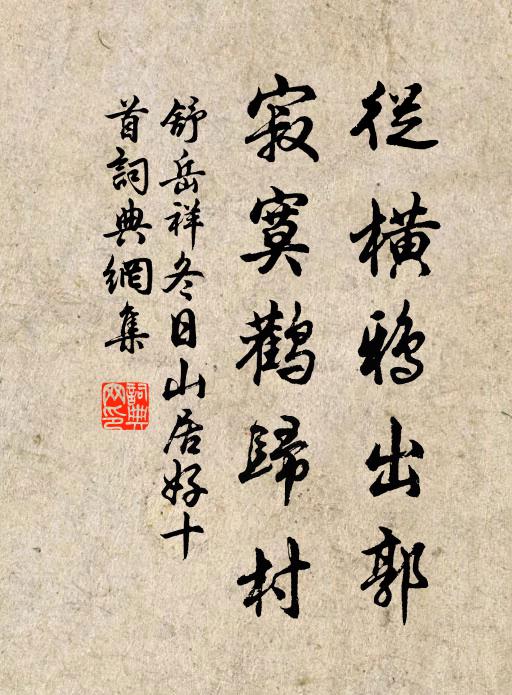 從橫鴉出郭
寂寞鸛歸村
舒岳祥冬日山居好十
首詞典網集
詞典
网印